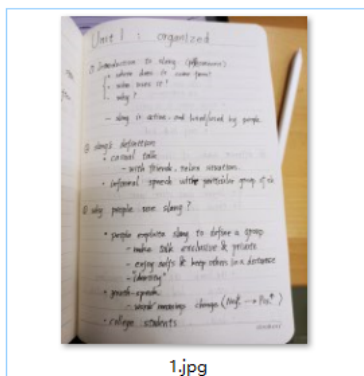 Unit 1 : organized
① Introduction to slang
• where does it come from?
• who uses it?
• why?
– slang is active, and used by people.
② slang's definition
• casual talk
– with friends, relax situation.
• informal speech particular group of
③ why people use slang?
• people explain slang to define a group
– make talk exclusive & private
– enjoy & keep others in a distance
– "identity"
• youth-speak
– words' meanings change (Neg. → Pos.)
• college students
1.jpg